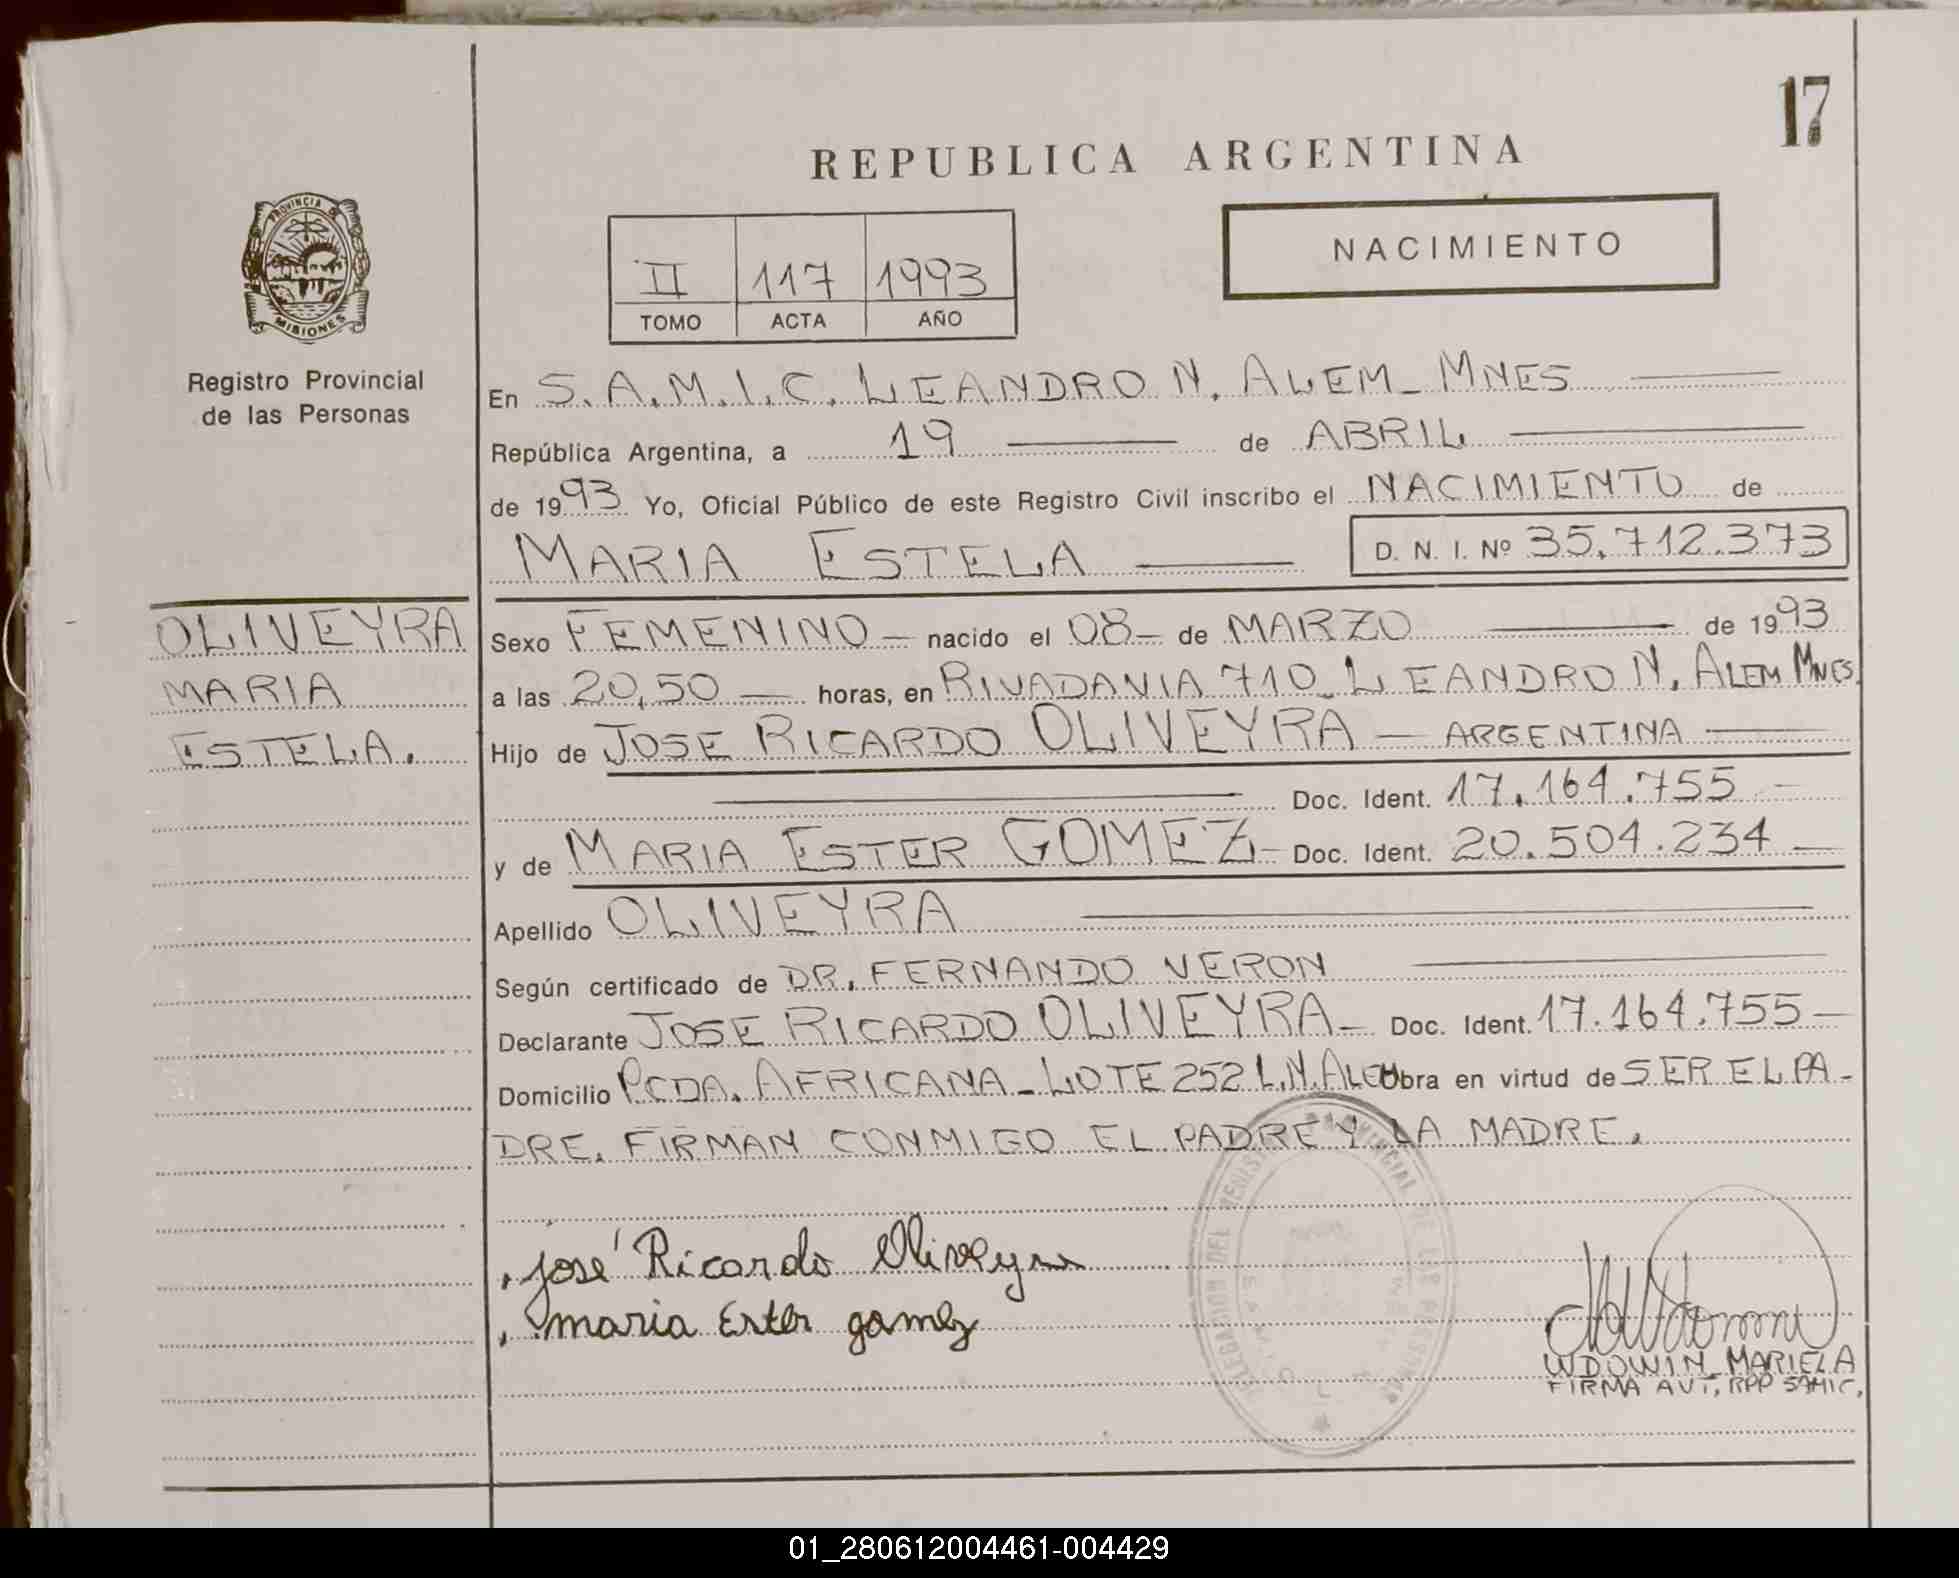 17
REPUBLICA ARGENTINA
PROVINCIA DE
MISIONES
Registro Provincial
de las Personas
II 117 1993
TOMO ACTA AÑO
NACIMIENTO
En S.A.M.I.C. LEANDRO N. ALEM - MNES
República Argentina, a 19 de ABRIL
de 1993 Yo, Oficial Público de este Registro Civil inscribo el NACIMIENTO de
MARIA ESTELA D. N. I. Nº 35.712.373
OLIVEYRA
MARIA
ESTELA.
Sexo FEMENINO - nacido el 08 - de MARZO de 1993
a las 20,50 - horas, en RIVADAVIA 710 - LEANDRO N. ALEM MNES.
Hijo de JOSE RICARDO OLIVEYRA - ARGENTINA
Doc. Ident. 17.164.755 -
y de MARIA ESTER GOMEZ - Doc. Ident. 20.504.234 -
Apellido OLIVEYRA
Según certificado de DR. FERNANDO VERON
Declarante JOSE RICARDO OLIVEYRA - Doc. Ident. 17.164.755 -
Domicilio PCDA. AFRICANA - LOTE 252 L.N. ALEM Obra en virtud de SER EL PA-
DRE. FIRMAN CONMIGO EL PADRE Y LA MADRE.
José Ricardo Oliveyra
maria Ester gomez
WDOWIN MARIELA
FIRMA AUT. RPP SAMIC.
01_280612004461-004429